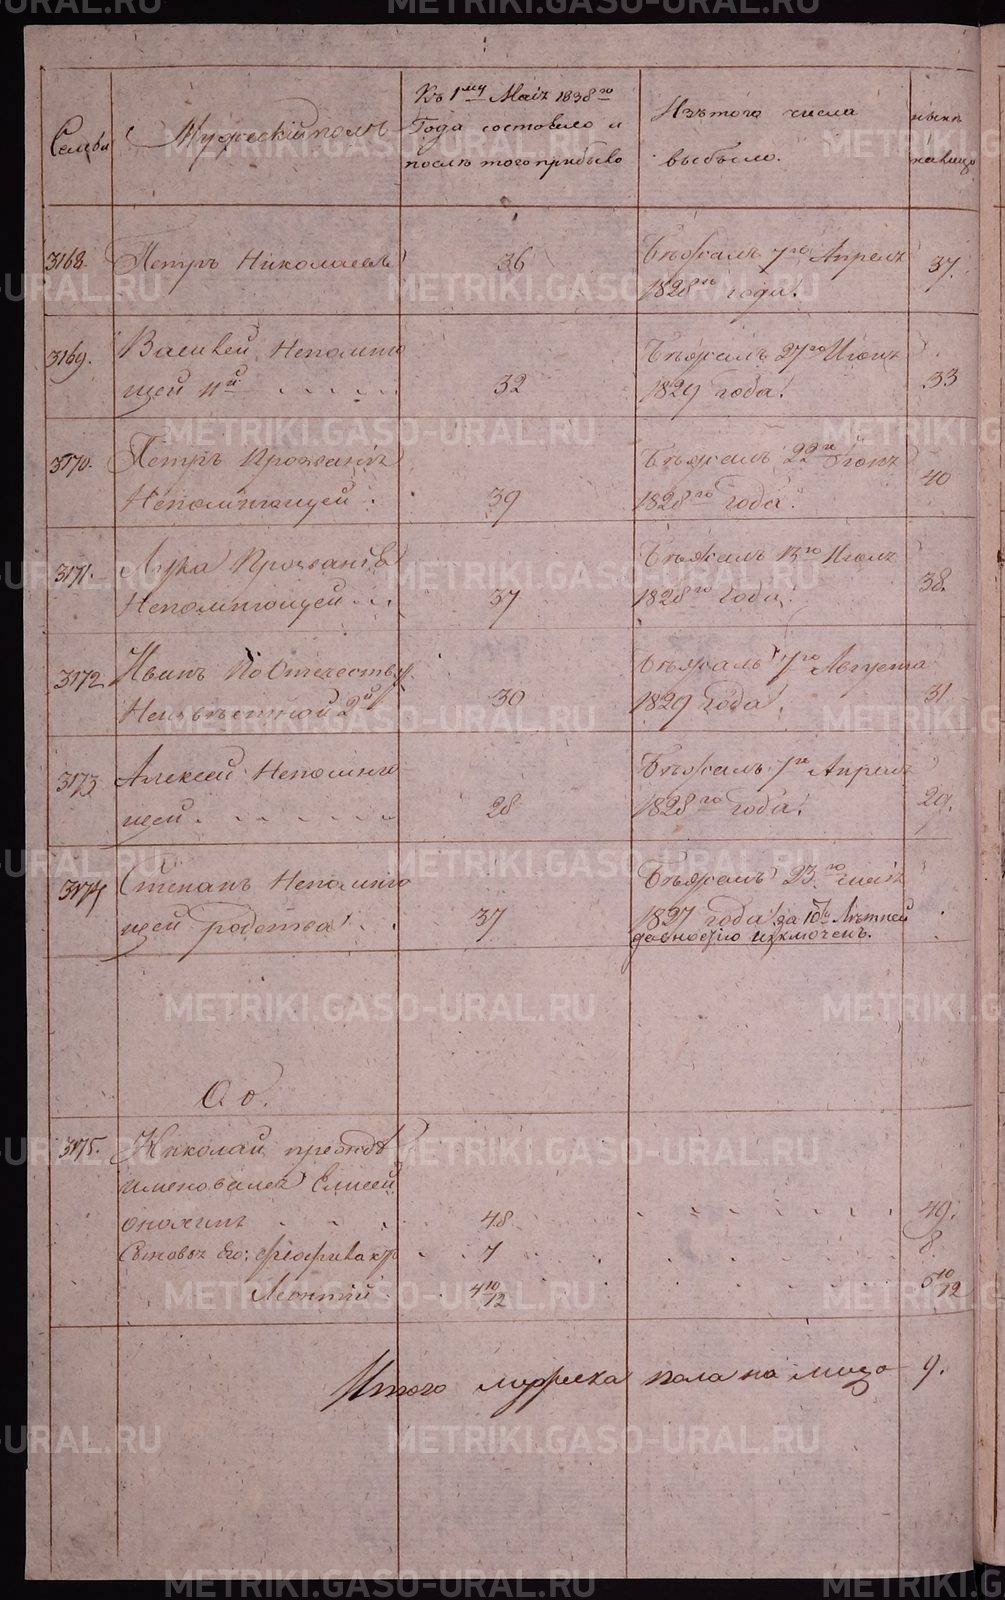 Семьи
Мужескiй полъ
Къ 1му Маiя 1838го
Года состояло и
послѣ того прибыло
Изъ того числа
выбыло.
нынѣ
на лицо
3168. Петръ Николаевъ 36 Бѣжалъ 7го Апреля 37.
1828го года.
3169. Василей Непомню Бѣжалъ 27го Июня
щей 11й 32 1829 года. 33
3170. Петръ Прозванiя Бѣжалъ 22го Июня 40
Непомнющей 39 1828го года.
3171. Лука Прозванiя Бѣжалъ 13го Июля 38.
Непомнющей 37 1828го года.
3172 Иванъ По Отечеству Бѣжалъ 7го Августа
Неизвѣстной 2й 30 1829 года. 31
3173 Алексей Непомню Бѣжалъ 7го Апреля
щей 28 1828го года. 29.
3174 Степанъ Непомню Бѣжалъ 23го
щей родства 37 1827 года за 10ти Лѣтней
давностiю изключенъ.
3175. Николай
именовался Елисей
48 49.
Сыновья Его: 7 8.
Леонтiй 4 10/12 5 10/12
Итого мужеска пола на лицо 9.
METRIKI.GASO-URAL.RU